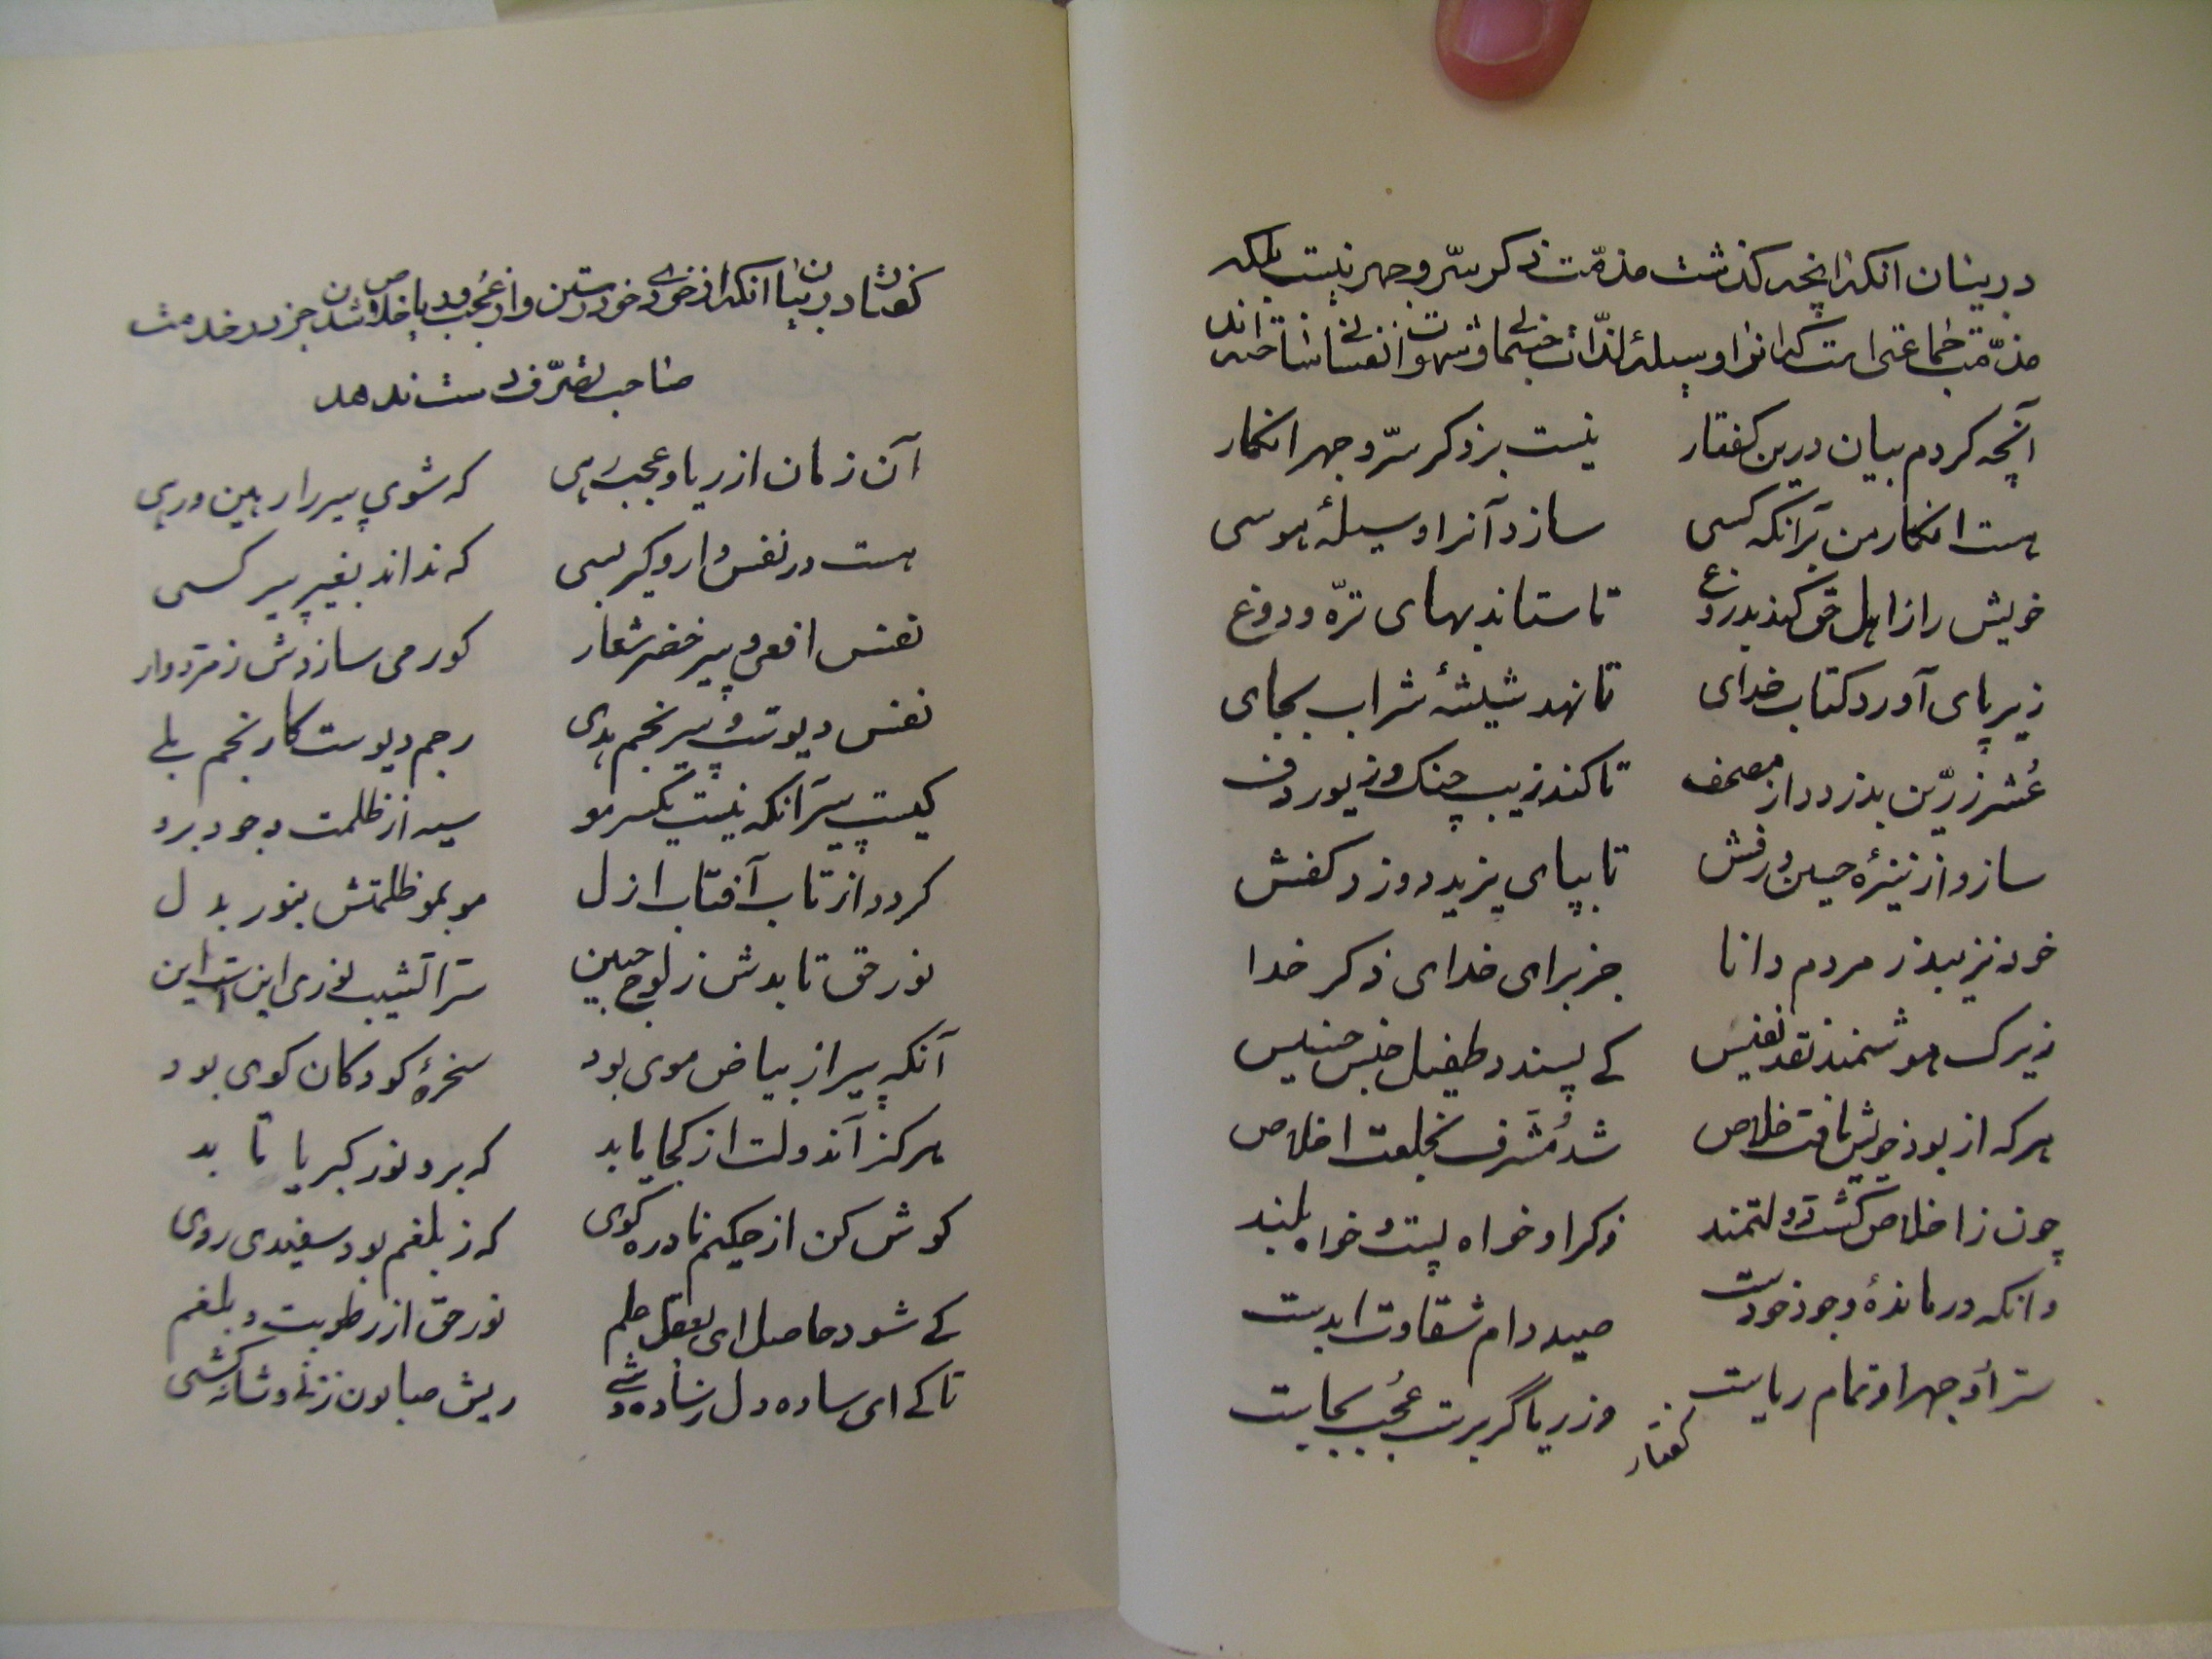 در بیان آنکه آنچه گذشت مذمّت ذکر سرّ و جهر نیست بلکه
مذمّت جماعتی است که آنرا وسیلهٔ لذّات جسمانی و شهوات نفسانی ساخته‌اند
آنچه کردم بیان درین گفتار نیست بر ذکر سرّ و جهر انکار
هست انکار من بر آنکه کسی سازد آنرا وسیلهٔ هوسی
خویش را ز اهل حق کند بدروغ تا ستاند بهای ترّه و دوغ
زیر پای آورد کتاب خدای تا نهد شیشهٔ شراب بجای
عُشر زرّین بدزدد از مصحف تا کند زیب چنگ و زیور دف
سازد از نیزهٔ حسین درفش تا بپای یزید دوزد کفش
خود نزیبد ز مردم دانا جز برای خدای ذکر خدا
زیرک هوشمند نقد نفیس کے پسندد طفیل جنس خسیس
هرکه از بود خویش یافت خلاص شد مُشرف بخلعت اخلاص
چون ز اخلاص گشت دولتمند ذکر او خواه پست و خواه بلند
وانکه درماندهٔ وجود خودست صید دام شقاوت ابدست
سرّ او جهر او تمام ریاست وز ریا گر برست عُجب بجاست
گفتار
گفتار در بیان آنکه از خودی خود رستن و از عُجب و ریا خلاص شدن جز در خدمت
صاحب تصرّف دست ندهد
آن زمان از ریا و عجب رهی که شوی پیر را رهین و رهی
هست در نفس دار و گیر بسی که نداند بغیر پیر کسی
نفس افعی و پیر خضر شعار کور می سازدش زمرّدوار
نفس دیوست و پیر نجم هدی رجم دیوست کار نجم بلے
کیست پیر آنکه نیست یکسر مو سیه از ظلمت وجود برو
کردد از تاب آفتاب ازل موبمو ظلمتش بنور بدل
نور حق تابدش ز لوح جبین سرّ الشیب نوری این است این
آنکه پیر از بیاض موی بود سخرهٔ کودکان کوی بود
هرکز آندولت از کجا یابد که برو نور کبریا تابد
کوش کن از حکیم نادره کوی که ز بلغم بود سفیدی روی
کے شود حاصل ای بعقل علم نور حق از رطوبت و بلغم
تا کے ای ساده دل ریش صابون زنی و شانه کشی